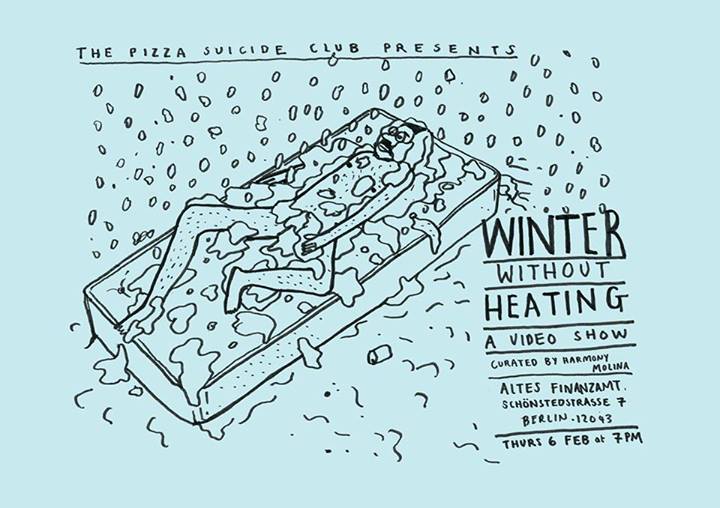 THE PIZZA SUICIDE CLUB PRESENTS
WINTER
WITHOUT
HEATING
A VIDEO SHOW
CURATED BY HARMONY
MOLINA
ALTES FINANZAMT.
SCHÖNSTEDSTRASSE 7
BERLIN-12043
THURS 6 FEB at 7PM